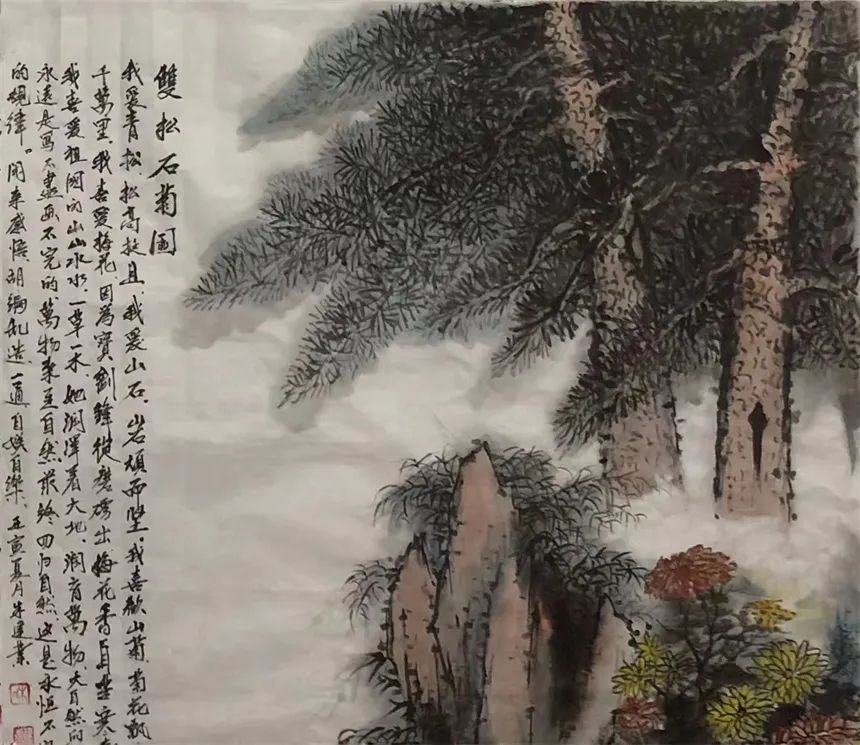 雙松石菊圖
我爱青松松高故且我爱山石岩頑而堅我喜歡山菊菊花飘
千萬里我喜爱梅花因為寶劍鋒從磨礪出梅花香自苦寒
我喜爱祖國的山山水水一草一木她润泽着大地润育萬物大自然的
永遠是写不盡画不完的萬物来至自然最终回归自然这是永恒不
的規律。闲来感悟胡编乱造一通自娱自樂壬寅夏月朱建業